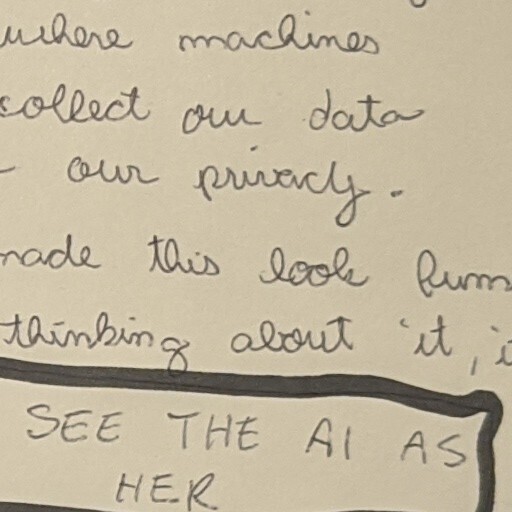 where machines
collect our data
- our privacy.
made this look
thinking about it,
SEE THE AI AS
HER